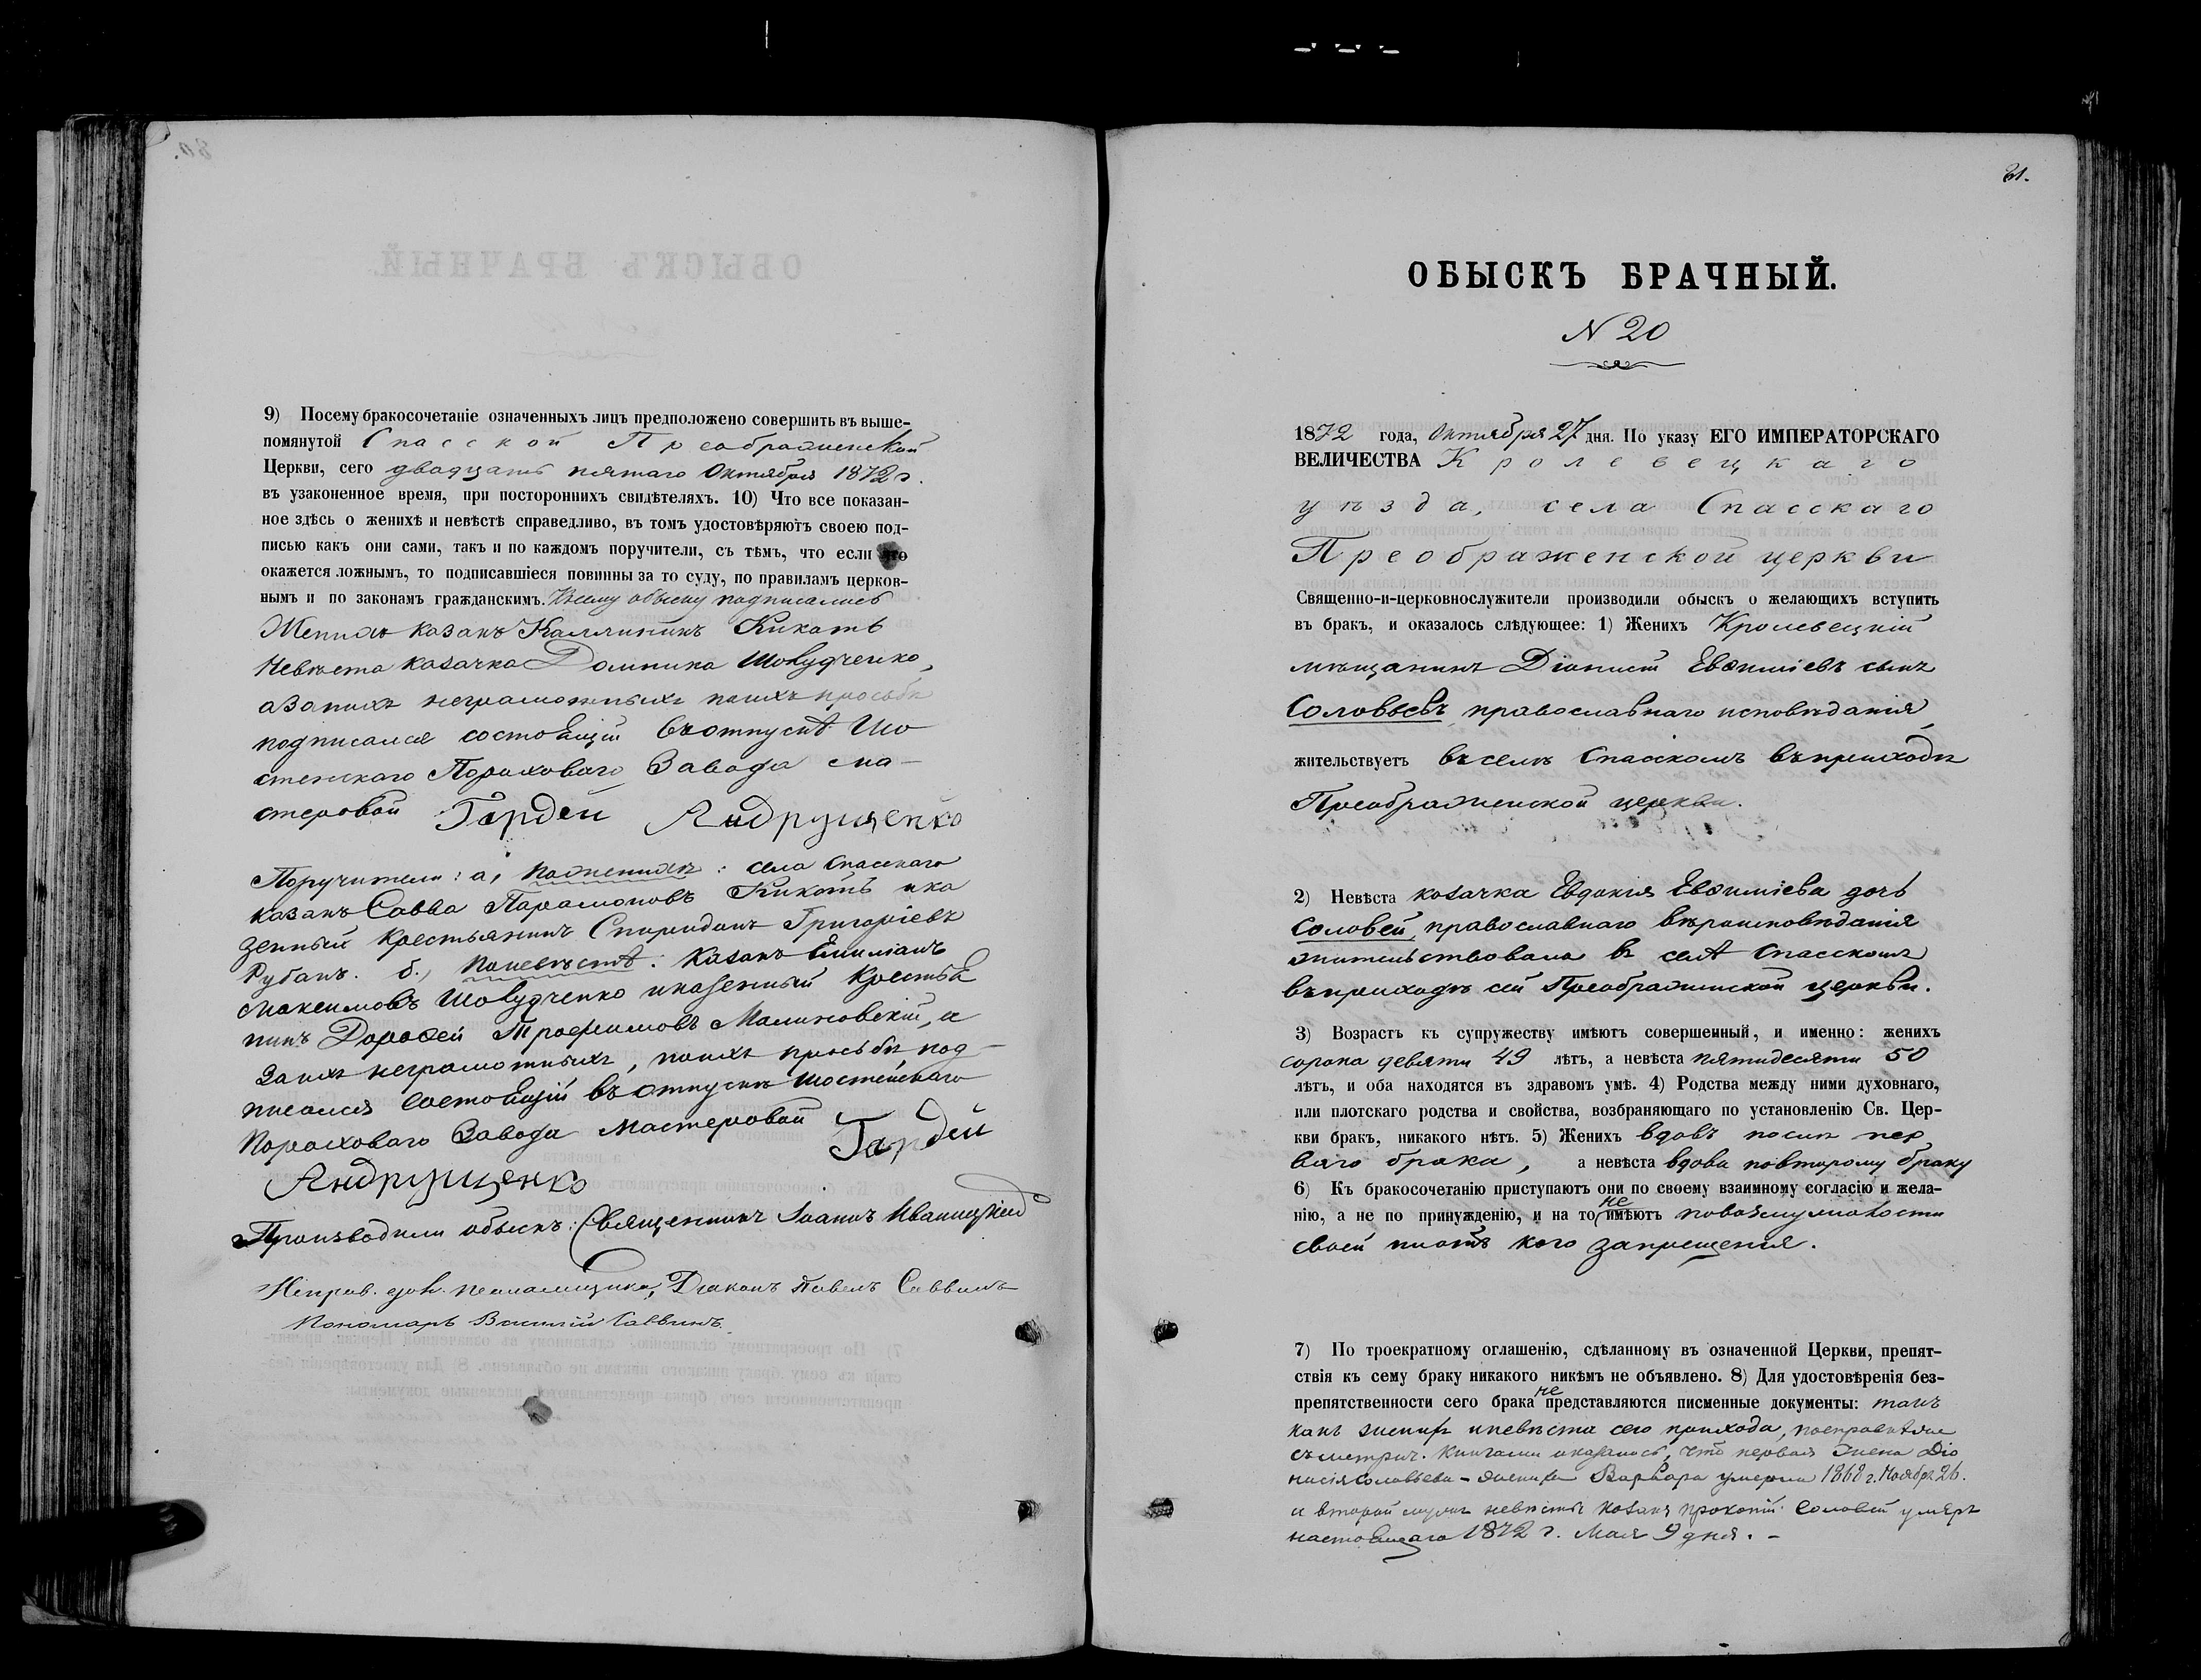 9) Посему бракосочетаніе означенныхъ лицъ предположено совершить въ выше-
помянутой Спасской Преображенской
Церкви, сего двадцать пятаго Октября 1872 г.
въ узаконенное время, при постороннихъ свидѣтеляхъ. 10) Что все показан-
ное здѣсь о женихѣ и невѣстѣ справедливо, въ томъ удостовѣряютъ своею под-
писью какъ они сами, такъ и по каждомъ поручители, съ тѣмъ, что если что
окажется ложнымъ, то подписавшіеся повинны за то суду, по правиламъ церков-
нымъ и по законамъ гражданскимъ. Къ сему обыску подписались
Женихъ казакъ Каллиникъ Кикоть
Невѣста казачка Домника Шовудченко,
а за нихъ неграмотныхъ по ихъ просьбѣ
подписался состоящій въ отпускѣ Шо
стенскаго Пороховаго Завода ма-
стеровой Гордей Андрущенко
Поручители: а, по женихѣ: села Спасскаго
казакъ Савва Парамоновъ Кикоть и ка
зенный крестьянинъ Спиридонъ Григоріевъ
Рубанъ. б., по невѣстѣ: казакъ Емиліанъ
Максимовъ Шовудченко и казенный крестья
нинъ Дороѳей Трофимовъ Малиновскій, а
за ихъ неграмотныхъ, по ихъ просьбѣ под-
писался состоящій въ отпускѣ Шостенскаго
Пороховаго Завода мастеровой Гордей
Андрущенко
Производили обыскъ: Священникъ Іоаннъ Иваницкій
Исправ. долж. псаломщика, Діаконъ Павелъ Саввинъ
Пономарь Василій Саввинъ.
61.
ОБЫСКЪ БРАЧНЫЙ.
N 20
1872 года, Октября 27 дня. По указу ЕГО ИМПЕРАТОРСКАГО
ВЕЛИЧЕСТВА Кролевецкаго
уѣзда, села Спасскаго
Преображенской церкви
Священно-и-церковнослужители производили обыскъ о желающихъ вступить
въ бракъ, и оказалось слѣдующее: 1) Женихъ Кролевецкій
мѣщанинъ Діонисій Евѳиміевъ сынъ
Соловьевъ, православнаго исповѣданія,
жительствуетъ въ селѣ Спасскомъ въ приходѣ
Преображенской церкви.
2) Невѣста козачка Евдокія Евѳиміева дочь
Соловей, православнаго вѣроисповѣданія
жительствовала въ селѣ Спасскомъ
въ приходѣ сей Преображенской церкви.
3) Возрастъ къ супружеству имѣютъ совершенный, и именно: женихъ
сорока девяти 49 лѣтъ, а невѣста пятидесяти 50
лѣтъ, и оба находятся въ здравомъ умѣ. 4) Родства между ними духовнаго,
или плотскаго родства и свойства, возбраняющаго по установленію Св. Цер-
кви бракъ, никакого нѣтъ. 5) Женихъ вдовъ послѣ пер
ваго брака, а невѣста вдова по второму браку
6) Къ бракосочетанію приступаютъ они по своему взаимному согласію и жела-
нію, а не по принужденію, и на то не имѣютъ
своей кого запрещенія.
7) По троекратному оглашенію, сдѣланному въ означенной Церкви, препят-
ствія къ сему браку никакого никѣмъ не объявлено. 8) Для удостовѣренія без-
препятственности сего брака не представляются писменные документы: такъ
какъ женихъ и невѣста сего прихода, по справкѣ
съ метрич. книгами оказалось, что первая жена Діо
нисія Соловьева - жениха Варвара умерла 1868 г. Ноябр. 26.
и второй мужъ невѣсты козакъ Прокопій Соловей умеръ
настоящаго 1872 г. Мая 9 дня. -